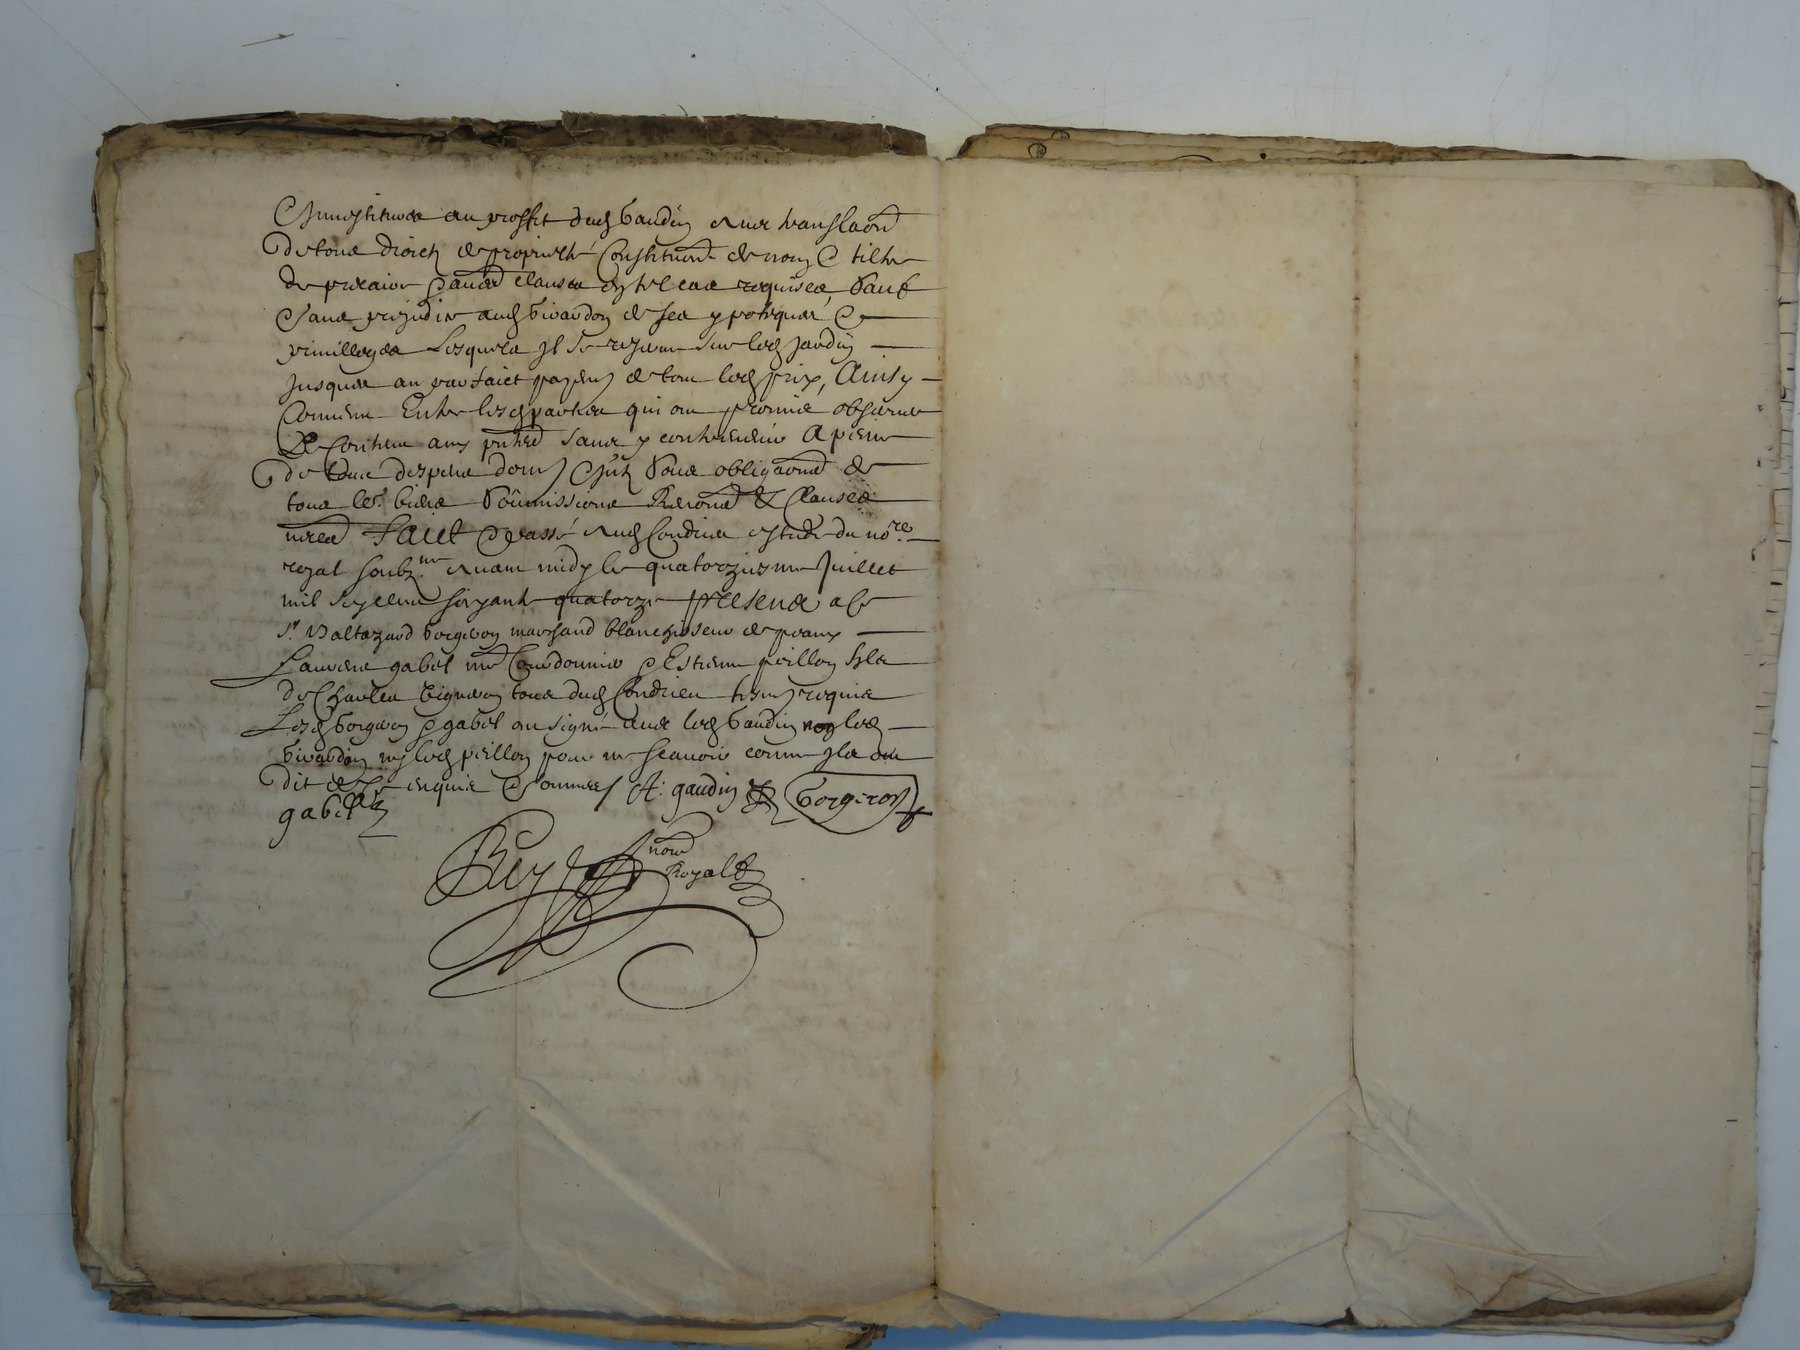 & Innestitures au proffit dud Gaudin avec translaõn
De tous droictz de proprietté Constitution de nom & tiltre
de precaire & autres clauses en tel cas requises, Sauf
& sans prejudice aud Girardon de ses ypoteques &
privilleges Lesquels Il se reserve sur led Jardin
Jusques au parfaict payemt de tout led prix, Ainsy
Convenu Entre lesd parties qui ont promis observer
Le Contenu aux pntes sans y contrevenir A peine
De tous despens dom & Intz soub obligaõns de
tous les biens Soûmissions Renonõns & Clauses
neces Fait & passé aud Condrieu estude du nore
royal soubzne avant midy le quatorzieme Juillet
mil six cens soixante quatorze presens a ce
Sr Baltazard Borgeron marchand blanchisseur de peaux
Laurens gabet me Courdonnier & Estienne peillon filz
de Charles Vigneron tous dud Condrieu tesmz requis
Lesd Borgeron & gabet ont signé avec led Gaudin non led
Girardon ny led peillon pour ne scavoir comme Ils ont
dit de ce enquis & sommes A. gaudin Borgeron
gabet
nore
Royal